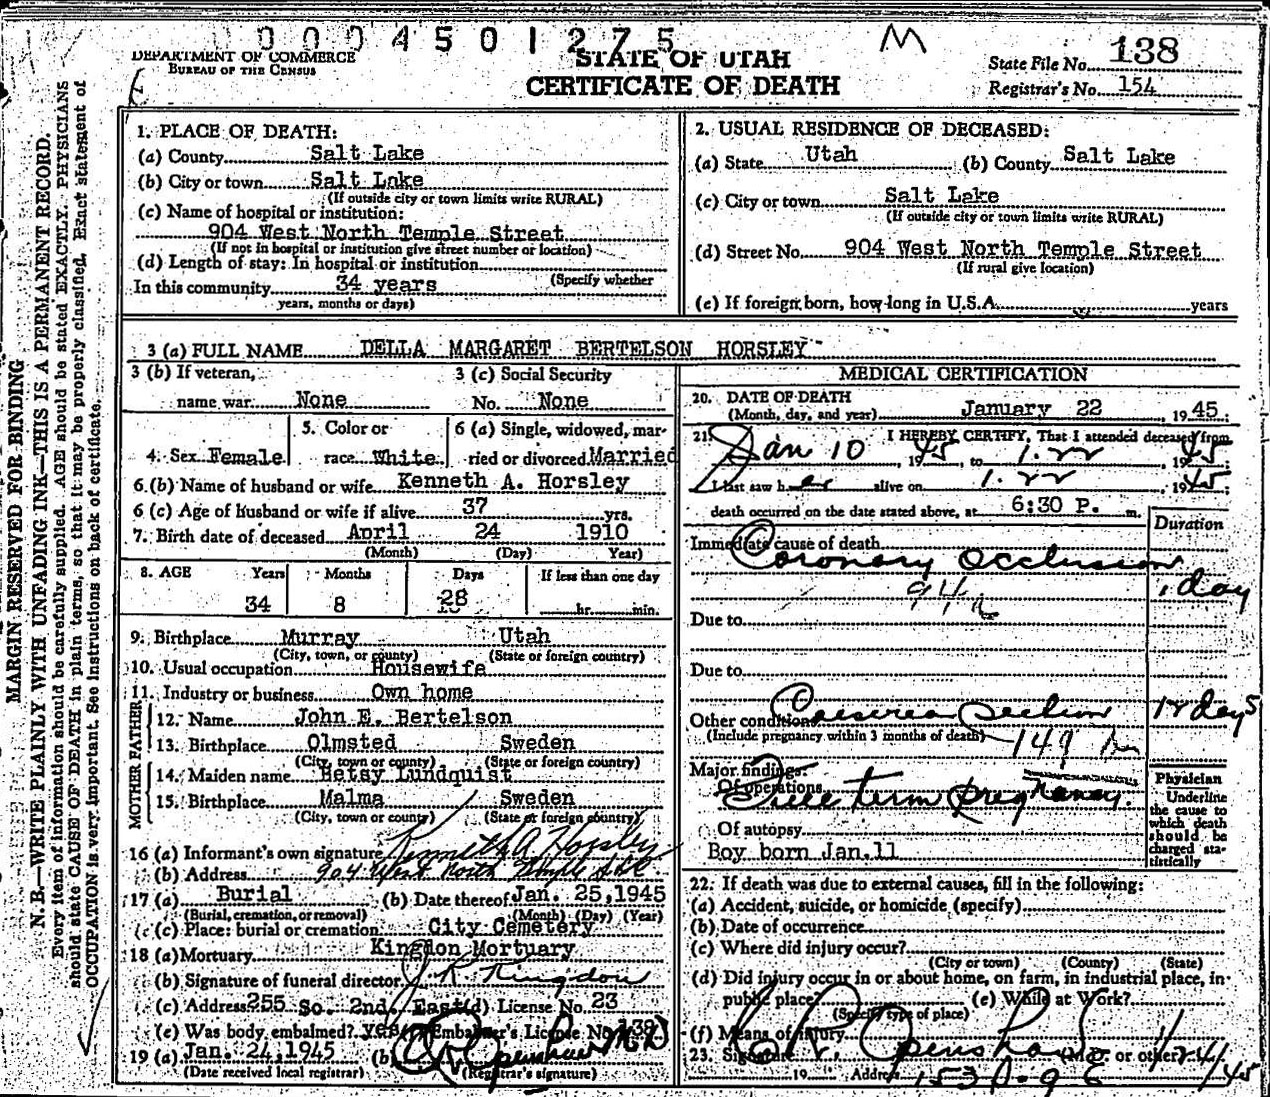 0004501275
M
DEPARTMENT OF COMMERCE
BUREAU OF THE CENSUS
STATE OF UTAH
CERTIFICATE OF DEATH
State File No. 138
Registrar's No. 154
MARGIN RESERVED FOR BINDING
N. B.—WRITE PLAINLY WITH UNFADING INK—THIS IS A PERMANENT RECORD.
Every item of information should be carefully supplied. AGE should be stated EXACTLY. PHYSICIANS
should state CAUSE OF DEATH in plain terms, so that it may be properly classified. Exact statement of
OCCUPATION is very important. See instructions on back of certificate.
1. PLACE OF DEATH:
(a) County Salt Lake
(b) City or town Salt Lake
(If outside city or town limits write RURAL)
(c) Name of hospital or institution:
904 West North Temple Street
(If not in hospital or institution give street number or location)
(d) Length of stay: In hospital or institution
(Specify whether
In this community 34 years
years, months or days)
2. USUAL RESIDENCE OF DECEASED:
(a) State Utah (b) County Salt Lake
(c) City or town Salt Lake
(If outside city or town limits write RURAL)
(d) Street No. 904 West North Temple Street
(If rural give location)
(e) If foreign born, how long in U.S.A. years
3 (a) FULL NAME DELLA MARGARET BERTELSON HORSLEY
3 (b) If veteran, 3 (c) Social Security
name war None No. None
5. Color or 6 (a) Single, widowed, mar-
4. Sex Female race White ried or divorced Married
6 (b) Name of husband or wife Kenneth A. Horsley
6 (c) Age of husband or wife if alive 37 yrs.
7. Birth date of deceased April 24 1910
(Month) (Day) Year)
8. AGE Years Months Days If less than one day
34 8 28 hr. min.
9. Birthplace Murray Utah
(City, town, or county) (State or foreign country)
10. Usual occupation Housewife
11. Industry or business Own home
FATHER
12. Name John E. Bertelson
13. Birthplace Olmsted Sweden
(City, town or county) (State or foreign country)
MOTHER
14. Maiden name Betsy Lundquist
15. Birthplace Malma Sweden
(City, town or county) (State or foreign country)
16 (a) Informant's own signature Kenneth A Horsley
(b) Address 904 West North Temple
17 (a) Burial (b) Date thereof Jan. 25, 1945
(Burial, cremation, or removal) (Month) (Day) (Year)
(c) Place: burial or cremation City Cemetery
18 (a) Mortuary Kingdon Mortuary
(b) Signature of funeral director J. R. Kingdon
(c) Address 255 So. 2nd East (d) License No. 23
(e) Was body embalmed? yes Embalmer's License No.
19 (a) Jan. 24, 1945 (b) Openshaw MD
(Date received local registrar) (Registrar's signature)
MEDICAL CERTIFICATION
20. DATE OF DEATH
(Month, day, and year) January 22, 1945
21. I HEREBY CERTIFY, That I attended deceased from
Jan 10, 1945, to 1.22, 1945
I last saw her alive on 1.22 1945
death occurred on the date stated above, at 6:30 P. m.
Duration
Immediate cause of death
Coronary Occlusion 1 day
94a
Due to
Due to
Other conditions Caesarean Section 12 days
(Include pregnancy within 3 months of death) 149
Major findings:
Of operations Full term pregnancy.
Of autopsy
Boy born Jan. 11
Physician
Underline
the cause to
which death
should be
charged sta-
tistically
22. If death was due to external causes, fill in the following:
(a) Accident, suicide, or homicide (specify)
(b) Date of occurrence
(c) Where did injury occur?
(City or town) (County) (State)
(d) Did injury occur in or about home, on farm, in industrial place, in
public place? (e) While at Work?
(Specify type of place)
(f) Means of injury
23. Signature C R Openshaw (M.D. or other) 1/24/45
19 Address